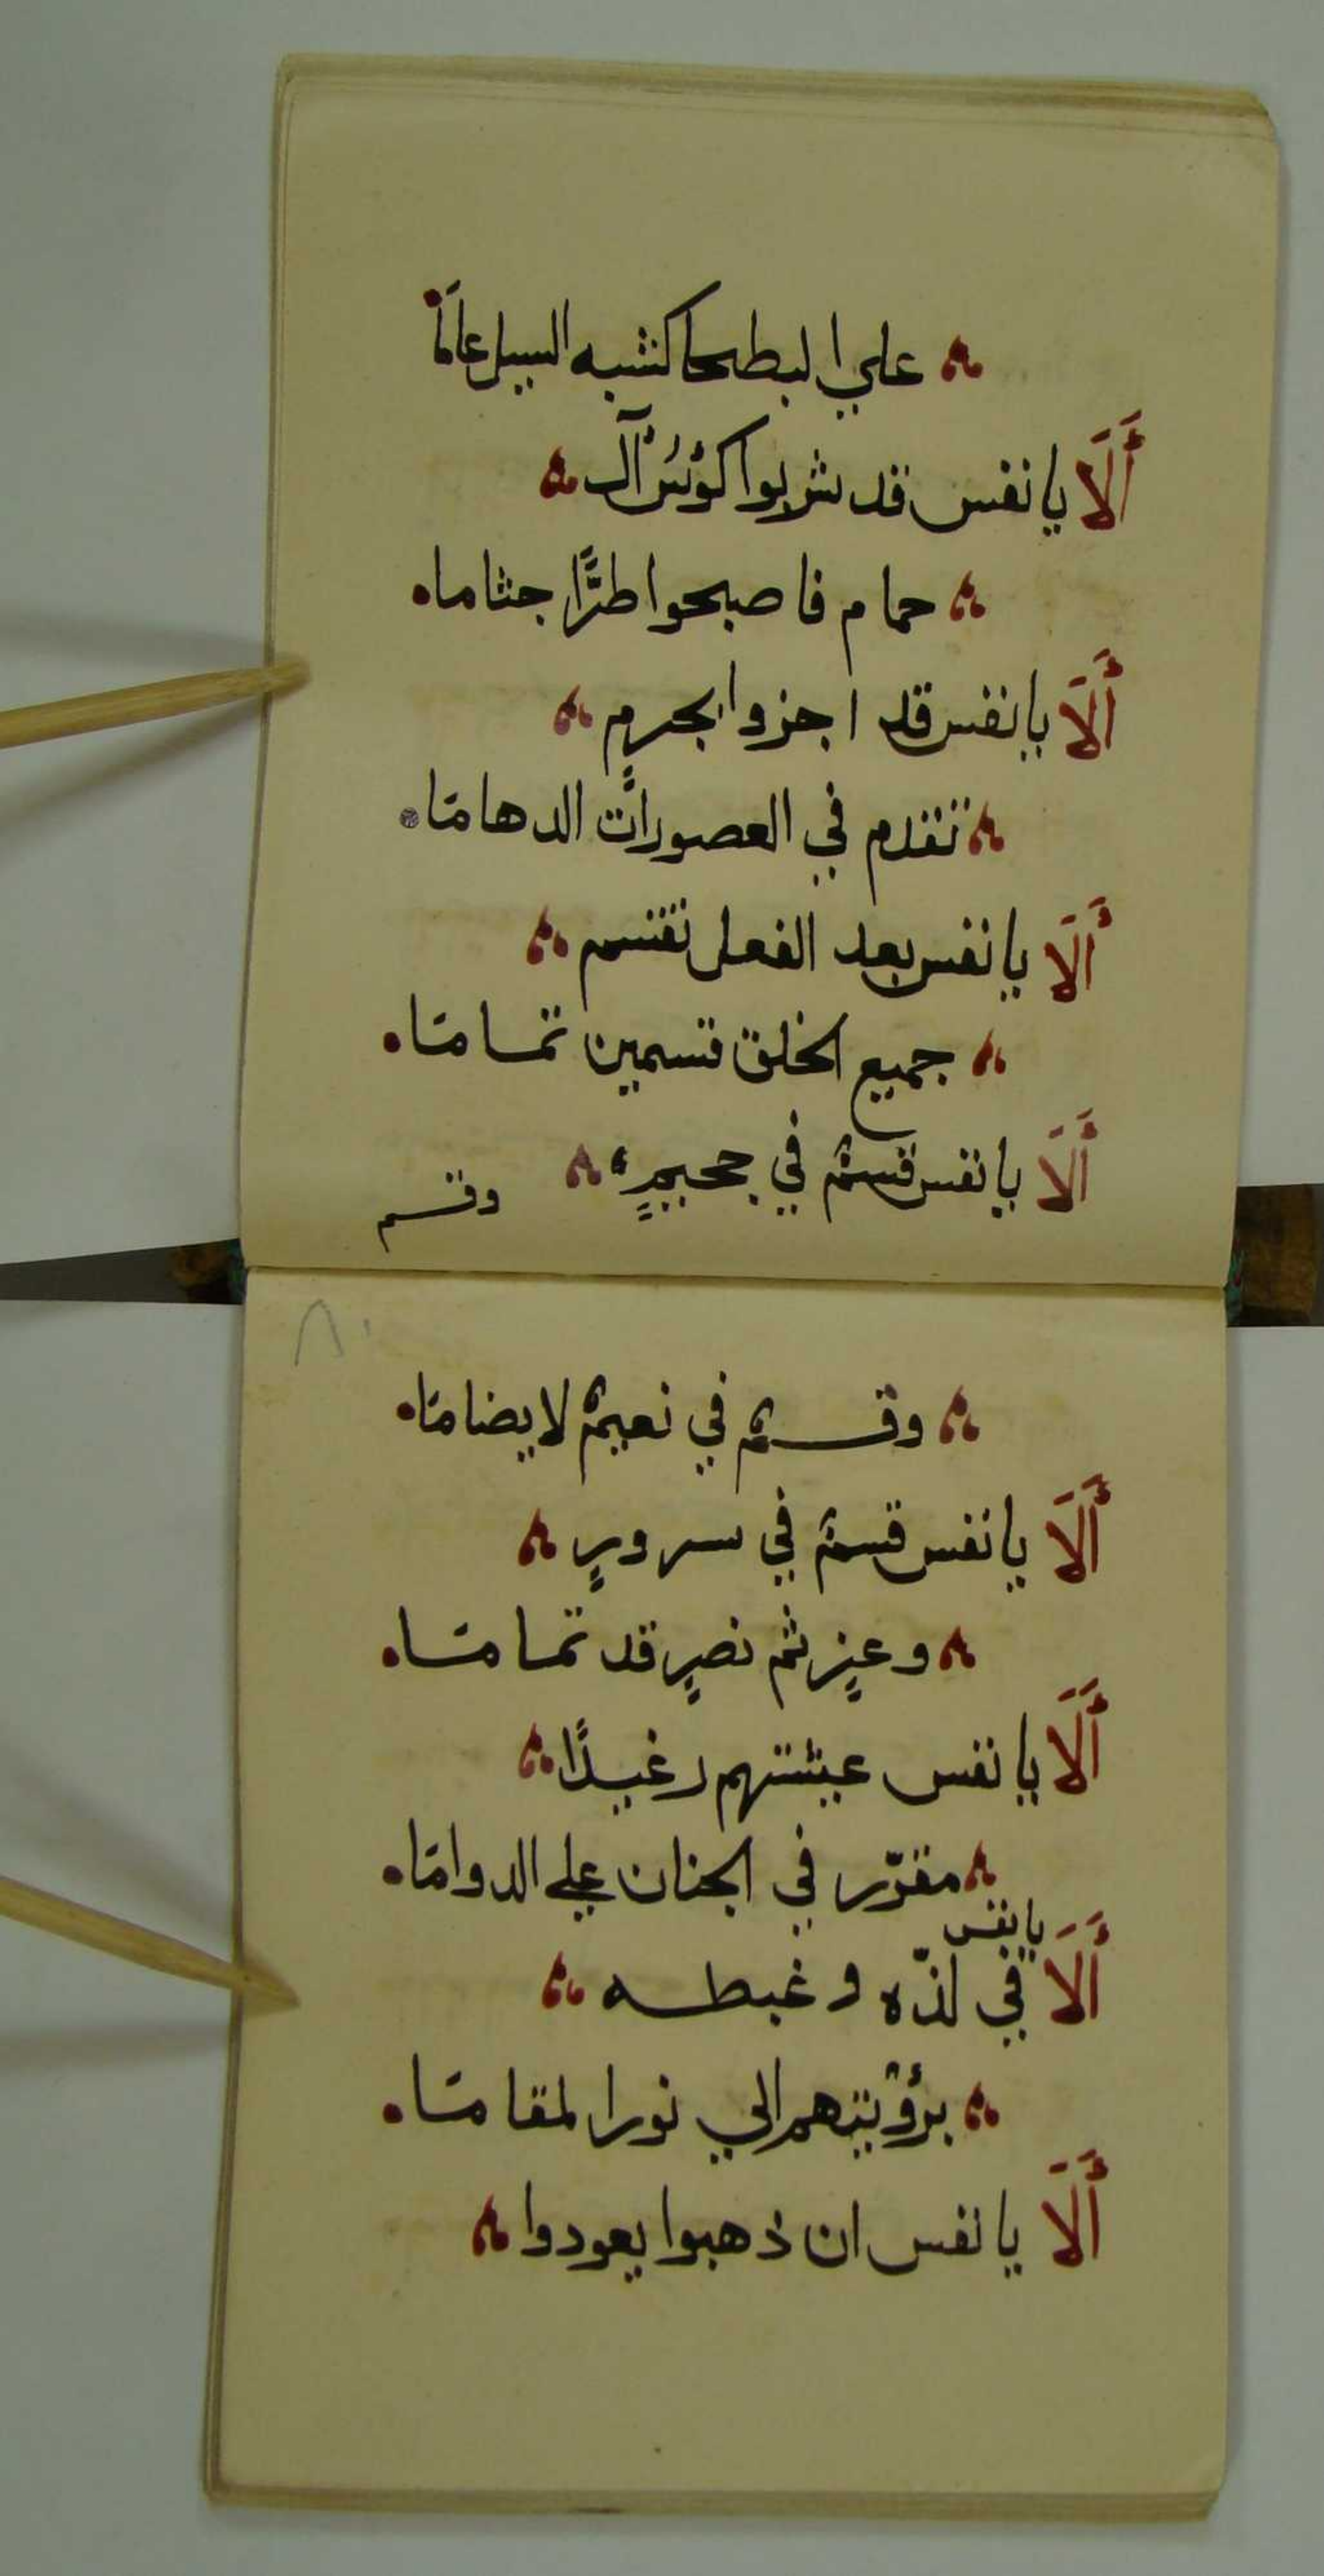 علي البطحا كشبه السيل عاما
أَلَا يا نفس قد شربوا كؤس آل
حمام فاصبحوا طرًّا جثاما
أَلَا يا نفس قد اجزوا بجرمٍ
تقدم في العصورات الدهامًا
أَلَا يا نفس بعد الفعل تقتسم
جميع الخلق قسمين تمامًا
أَلَا يا نفس قسمٌ في جحيمٍ
وقسم
٨٠
وقسمٌ في نعيمٌ لا يضامًا
أَلَا يا نفس قسمٌ في سرورٍ
وعزٍ ثم نصرٍ قد تمامًا
أَلَا يا نفس عيشتهم رغيدًا
مقرّر في الجنان علي الدوامًا
أَلَا يا نفس في لذّه وغبطه
برؤيتهم الي نور المقامًا
أَلَا يا نفس ان ذهبوا يعودوا